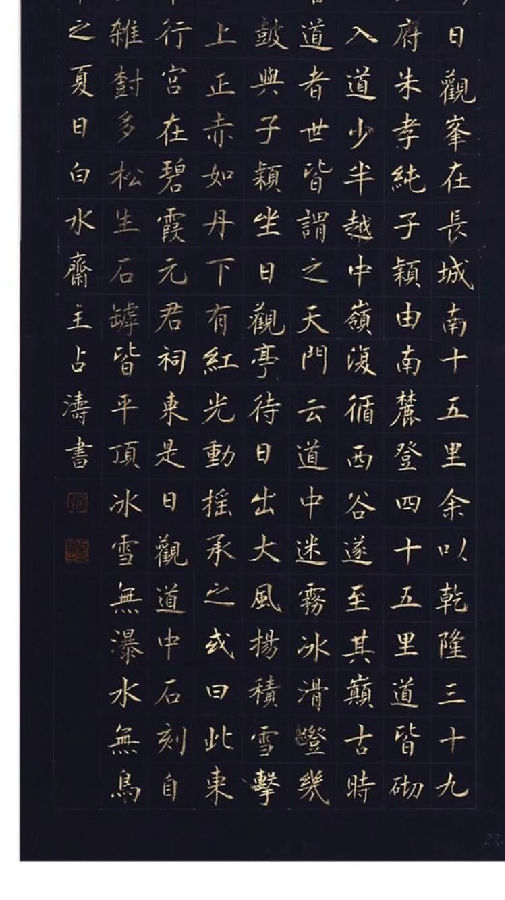 日觀峯在長城南十五里余以乾隆三十九
府朱孝純子穎由南麓登四十五里道皆砌
入道少半越中嶺復循西谷遂至其巔古時
道者世皆謂之天門云道中迷霧冰滑磴幾
鼓與子穎坐日觀亭待日出大風揚積雪擊
上正赤如丹下有紅光動搖承之或曰此東
行宮在碧霞元君祠東是日觀道中石刻自
雜樹多松生石罅皆平頂冰雪無瀑水無鳥
之夏日白水齋主占濤書